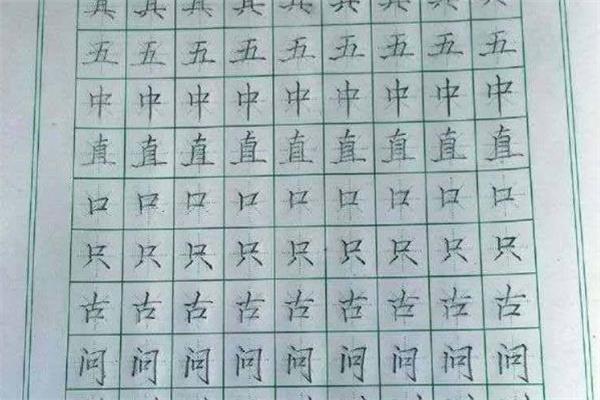 五五五五五五五五五
中中中中中中中中中
直直直直直直直直直
口口口口口口口口口
只只只只只只只只只
古古古古古古古古古
问问问问问问问问问